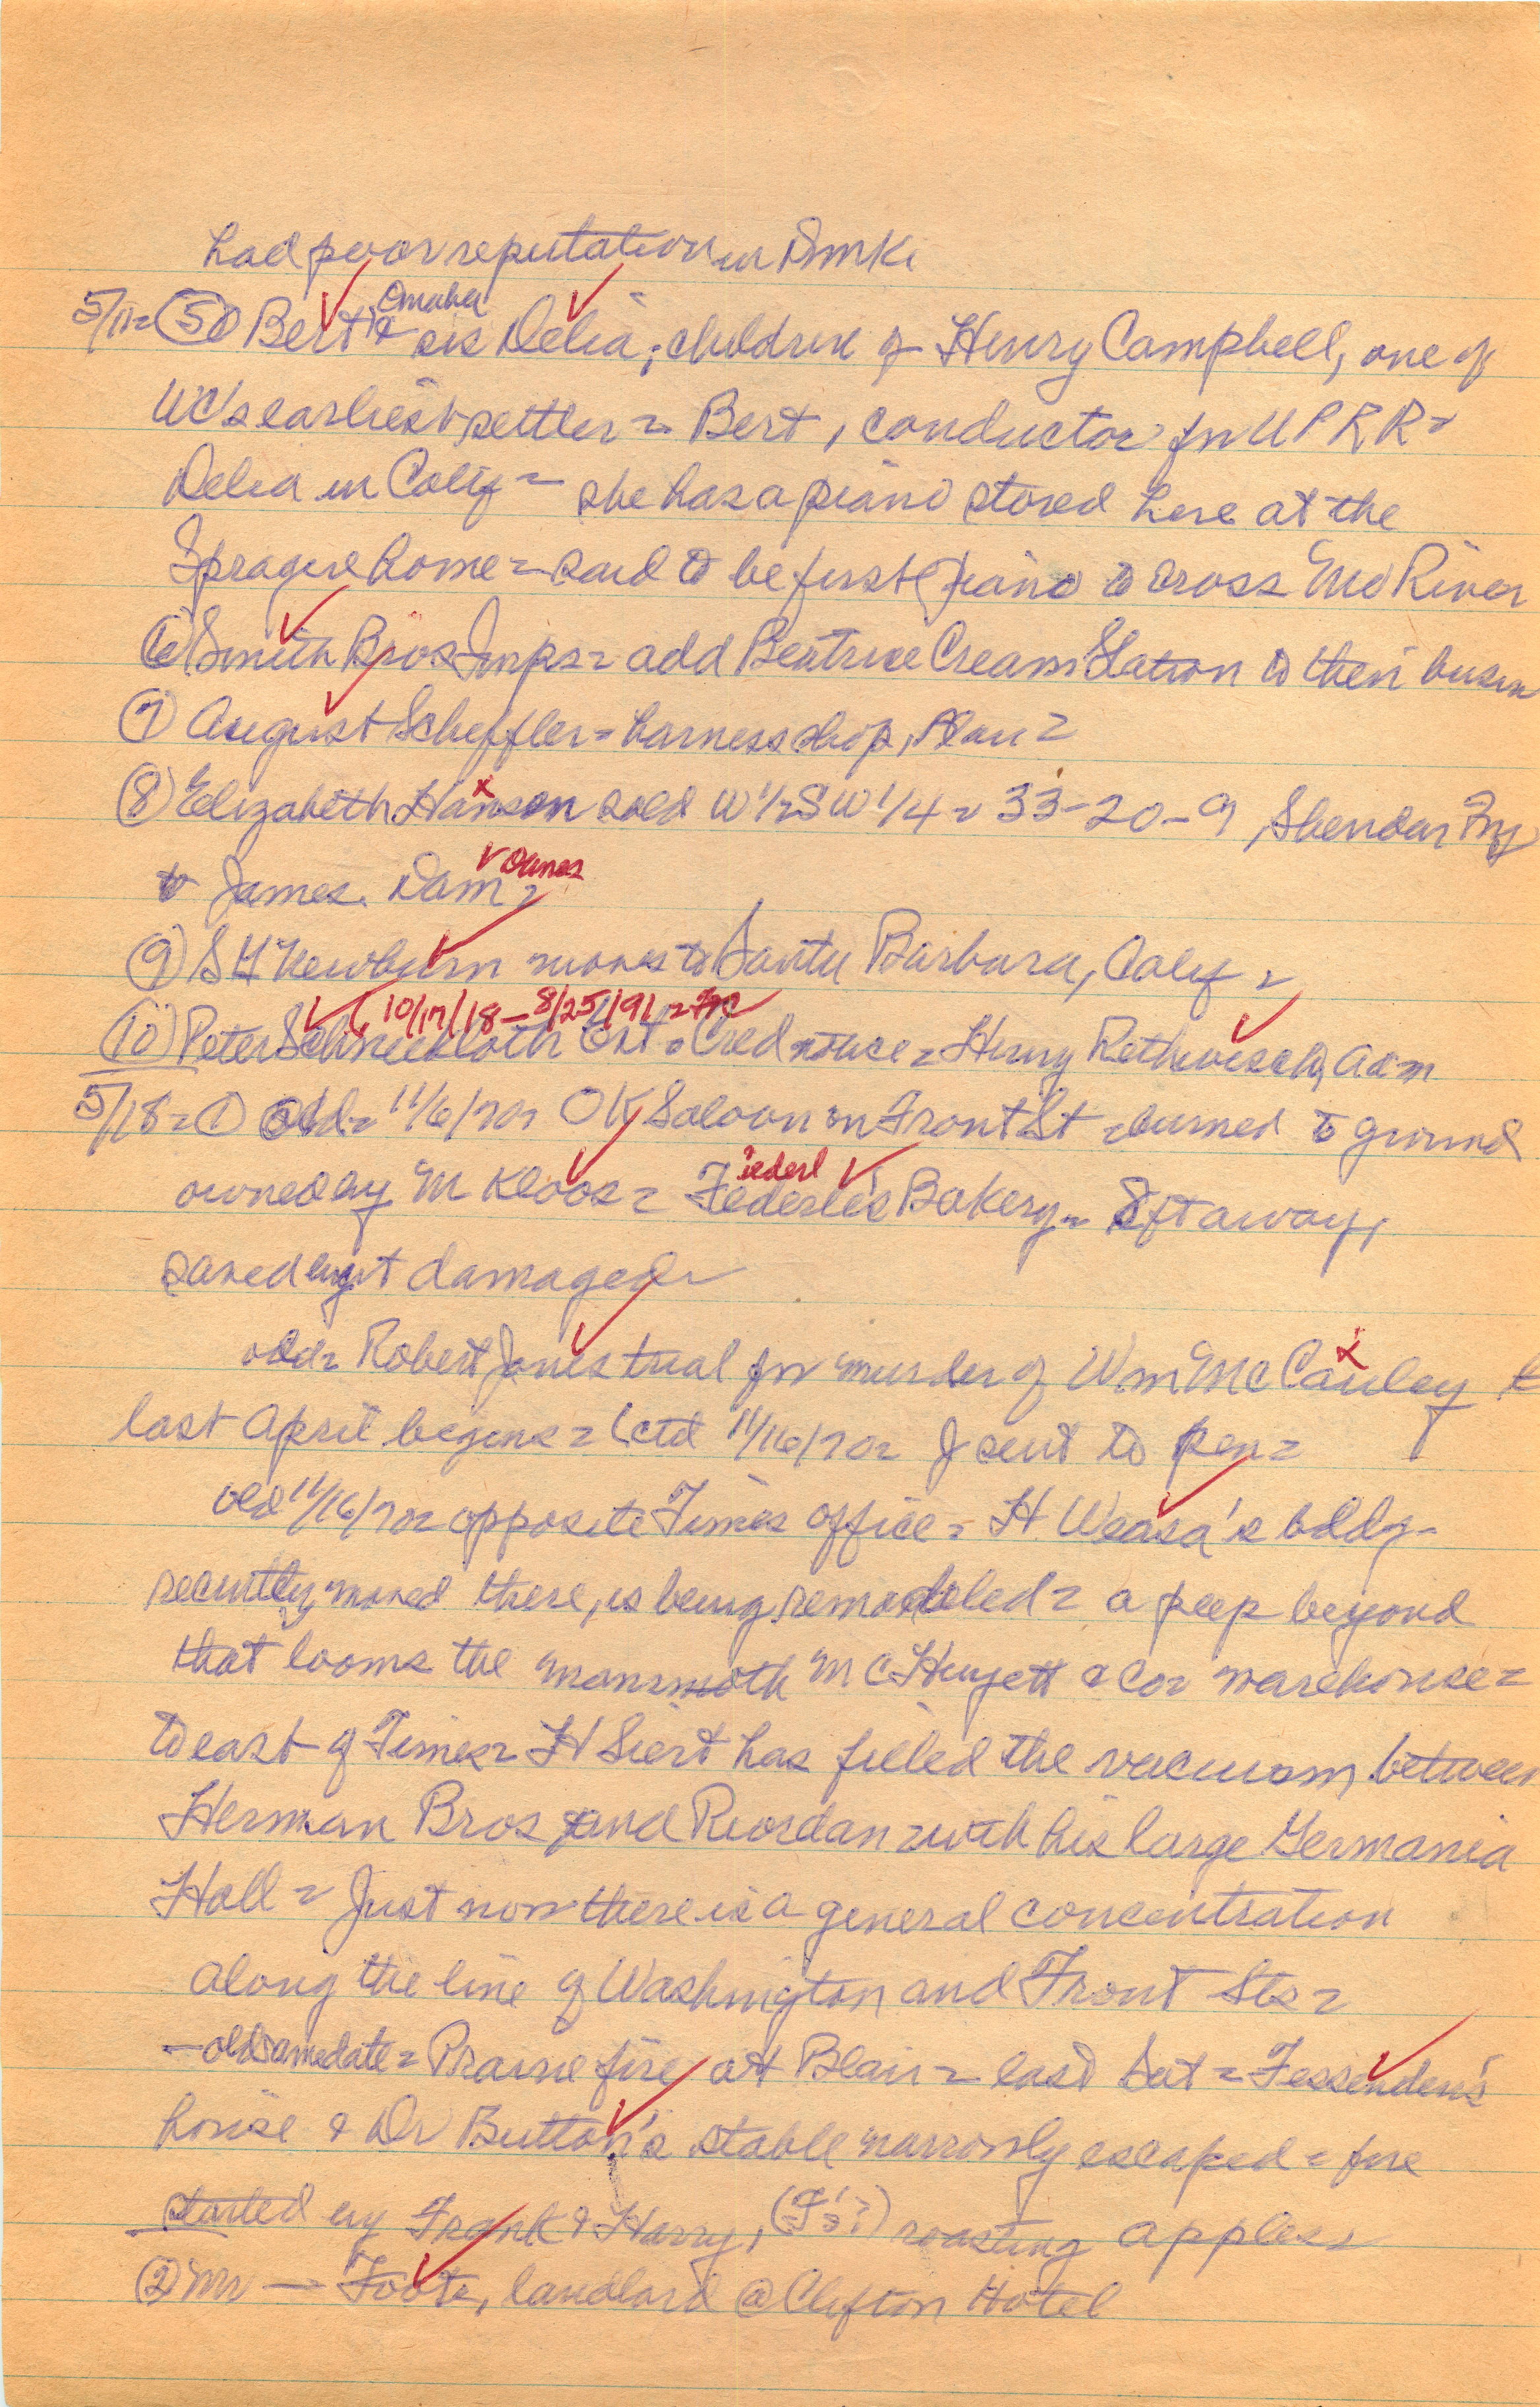 had poor reputation in Dmk.
5/11= (5) Bert, Omaha & sis Delia, children of Henry Campbell, one of
WC's earliest settler = Bert, conductor for UPRR =
Delia in Calif = she has a piano stored here at the
Sprague home = said to be first piano to cross Mo River
(6) Smith Bros Imps = add Beatrice Cream Station to their busn
(7) August Scheffler = harness shop,
(8) Elizabeth Hanson sold W 1/2 SW 1/4 = 33-20-9, Sheridan Twp
to James Dam = Dames
(9) S H Newburn moves to Santa Barbara, Calif =
(10) Peter Schneekloth (10/17/18 - 8/25/191 = Est = Cred notice = Henry Rethwisch, adm
5/18 = (1) Old = 11/6/70= OK Saloon on Front St = burned to ground
owned by M Kloos = Federle's iederl Bakery = 8 ft away,
saved but damaged =
old = Robert Jones trial for murder of Wm McCauley
last April begins = (ctd 11/16/70= J sent to pen =
old 11/16/70= opposite Times office = H Weasa's bldg -
recently moved there, is being remodeled = a peep beyond
that looms the mammoth M C Huyett & Co = warehouse =
to east of Times = H Siert has filled the vacuum between
Herman Bros and Riordan = with his large Germania
Hall = Just now there is a general concentration
along the line of Washington and Front Sts =
- old same date = Prairie fire at Blair = last Sat = Fessenden's
house & Dr Button's stable narrowly escaped = fire
started by Frank & Harry, (F's?) roasting apples =
(2) Mr — Foote, landlord @ Clifton Hotel